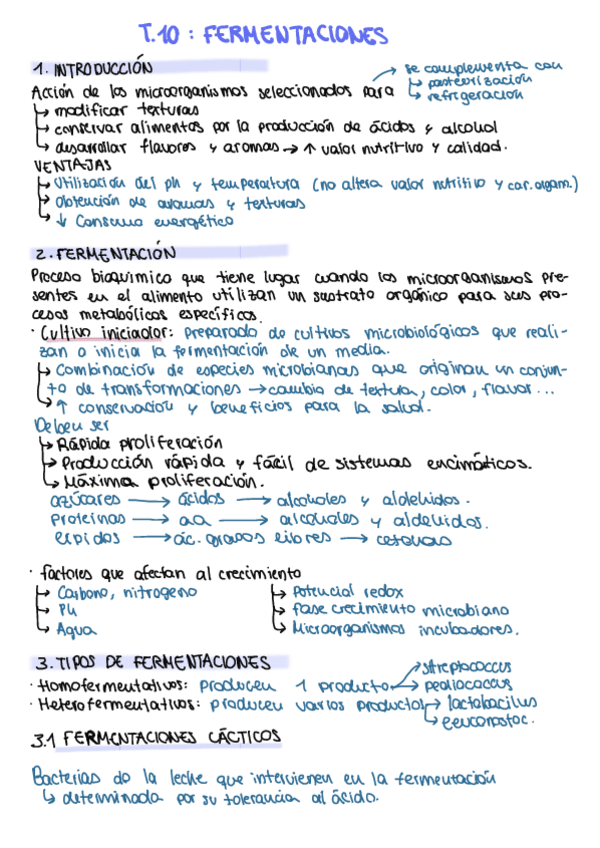 T.10 : FERMENTACIONES
1. INTRODUCCIÓN
Acción de los microorganismos seleccionados para → se complementa con
↳ pasteurización
↳ refrigeración
↳ modificar texturas
↳ conservar alimentos por la producción de ácidos y alcohol
↳ desarrollar flavores y aromas → ↑ valor nutritivo y calidad.
VENTAJAS
↳ Utilización del ph y temperatura (no altera valor nutritivo y car. organ.)
↳ Obtención de aromas y texturas
↳ ↓ Consumo energético
2. FERMENTACIÓN
Proceso bioquimico que tiene lugar cuando los microorganismos pre-
sentes en el alimento utilizan un sustrato orgánico para sus pro-
cesos metabólicos específicos.
· Cultivo iniciador: Preparado de cultivos microbiológicos que reali-
zan o inicia la fermentación de un media.
↳ Combinación de especies microbianas que originan un conjun-
to de transformaciones → cambio de textura, color, flavor...
↳ ↑ conservación y beneficios para la salud.
Deben ser
↳ Rápida proliferación
↳ Producción rápida y fácil de sistemas encimáticos.
↳ Máxima proliferación.
azúcares → ácidos → alcoholes y aldehidos.
Proteinas → aa → alcoholes y aldehidos.
Lipidos → ác. grasos libres → cetonas
· factores que afectan al crecimiento
↳ Carbono, nitrogeno
↳ Ph
↳ Agua
↳ Potencial redox
↳ fase crecimiento microbiano
↳ Microorganismos incubadores.
3. TIPOS DE FERMENTACIONES
· Homofermentativos: Producen 1 producto → streptococcus
→ pediococcus
· Heterofermentativos: producen varios productos → lactobacilus
↳ leuconostoc.
3.1 FERMENTACIONES LÁCTICOS
Bacterias do la leche que intervienen en la fermentación
↳ determinada por su tolerancia al ácido.